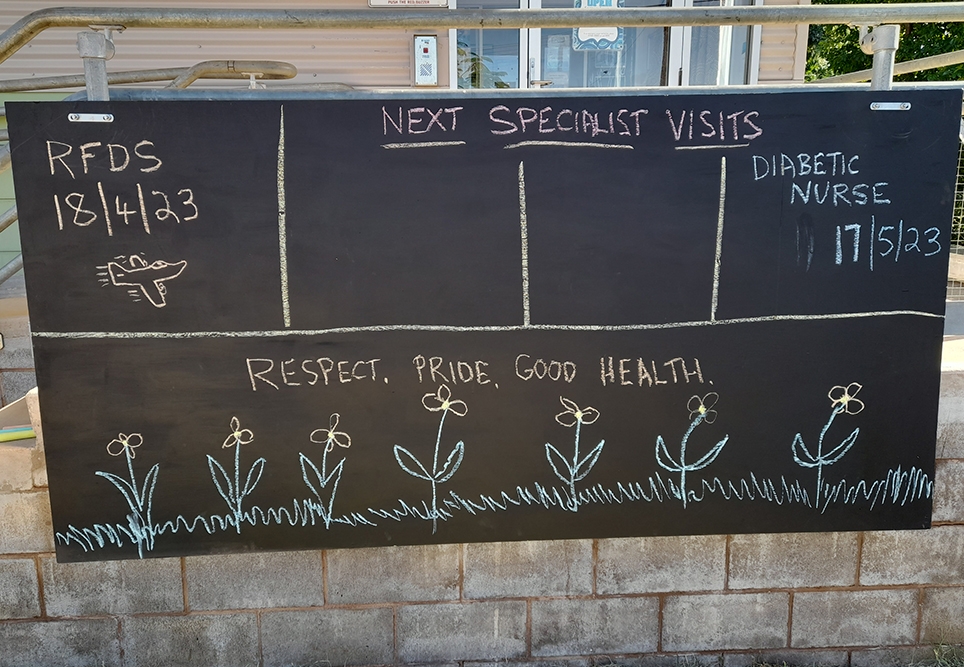 PUSH THE RED BUTTON
NEXT SPECIALIST VISITS
RFDS
18/4/23
DIABETIC
NURSE
17/5/23
RESPECT. PRIDE. GOOD HEALTH.